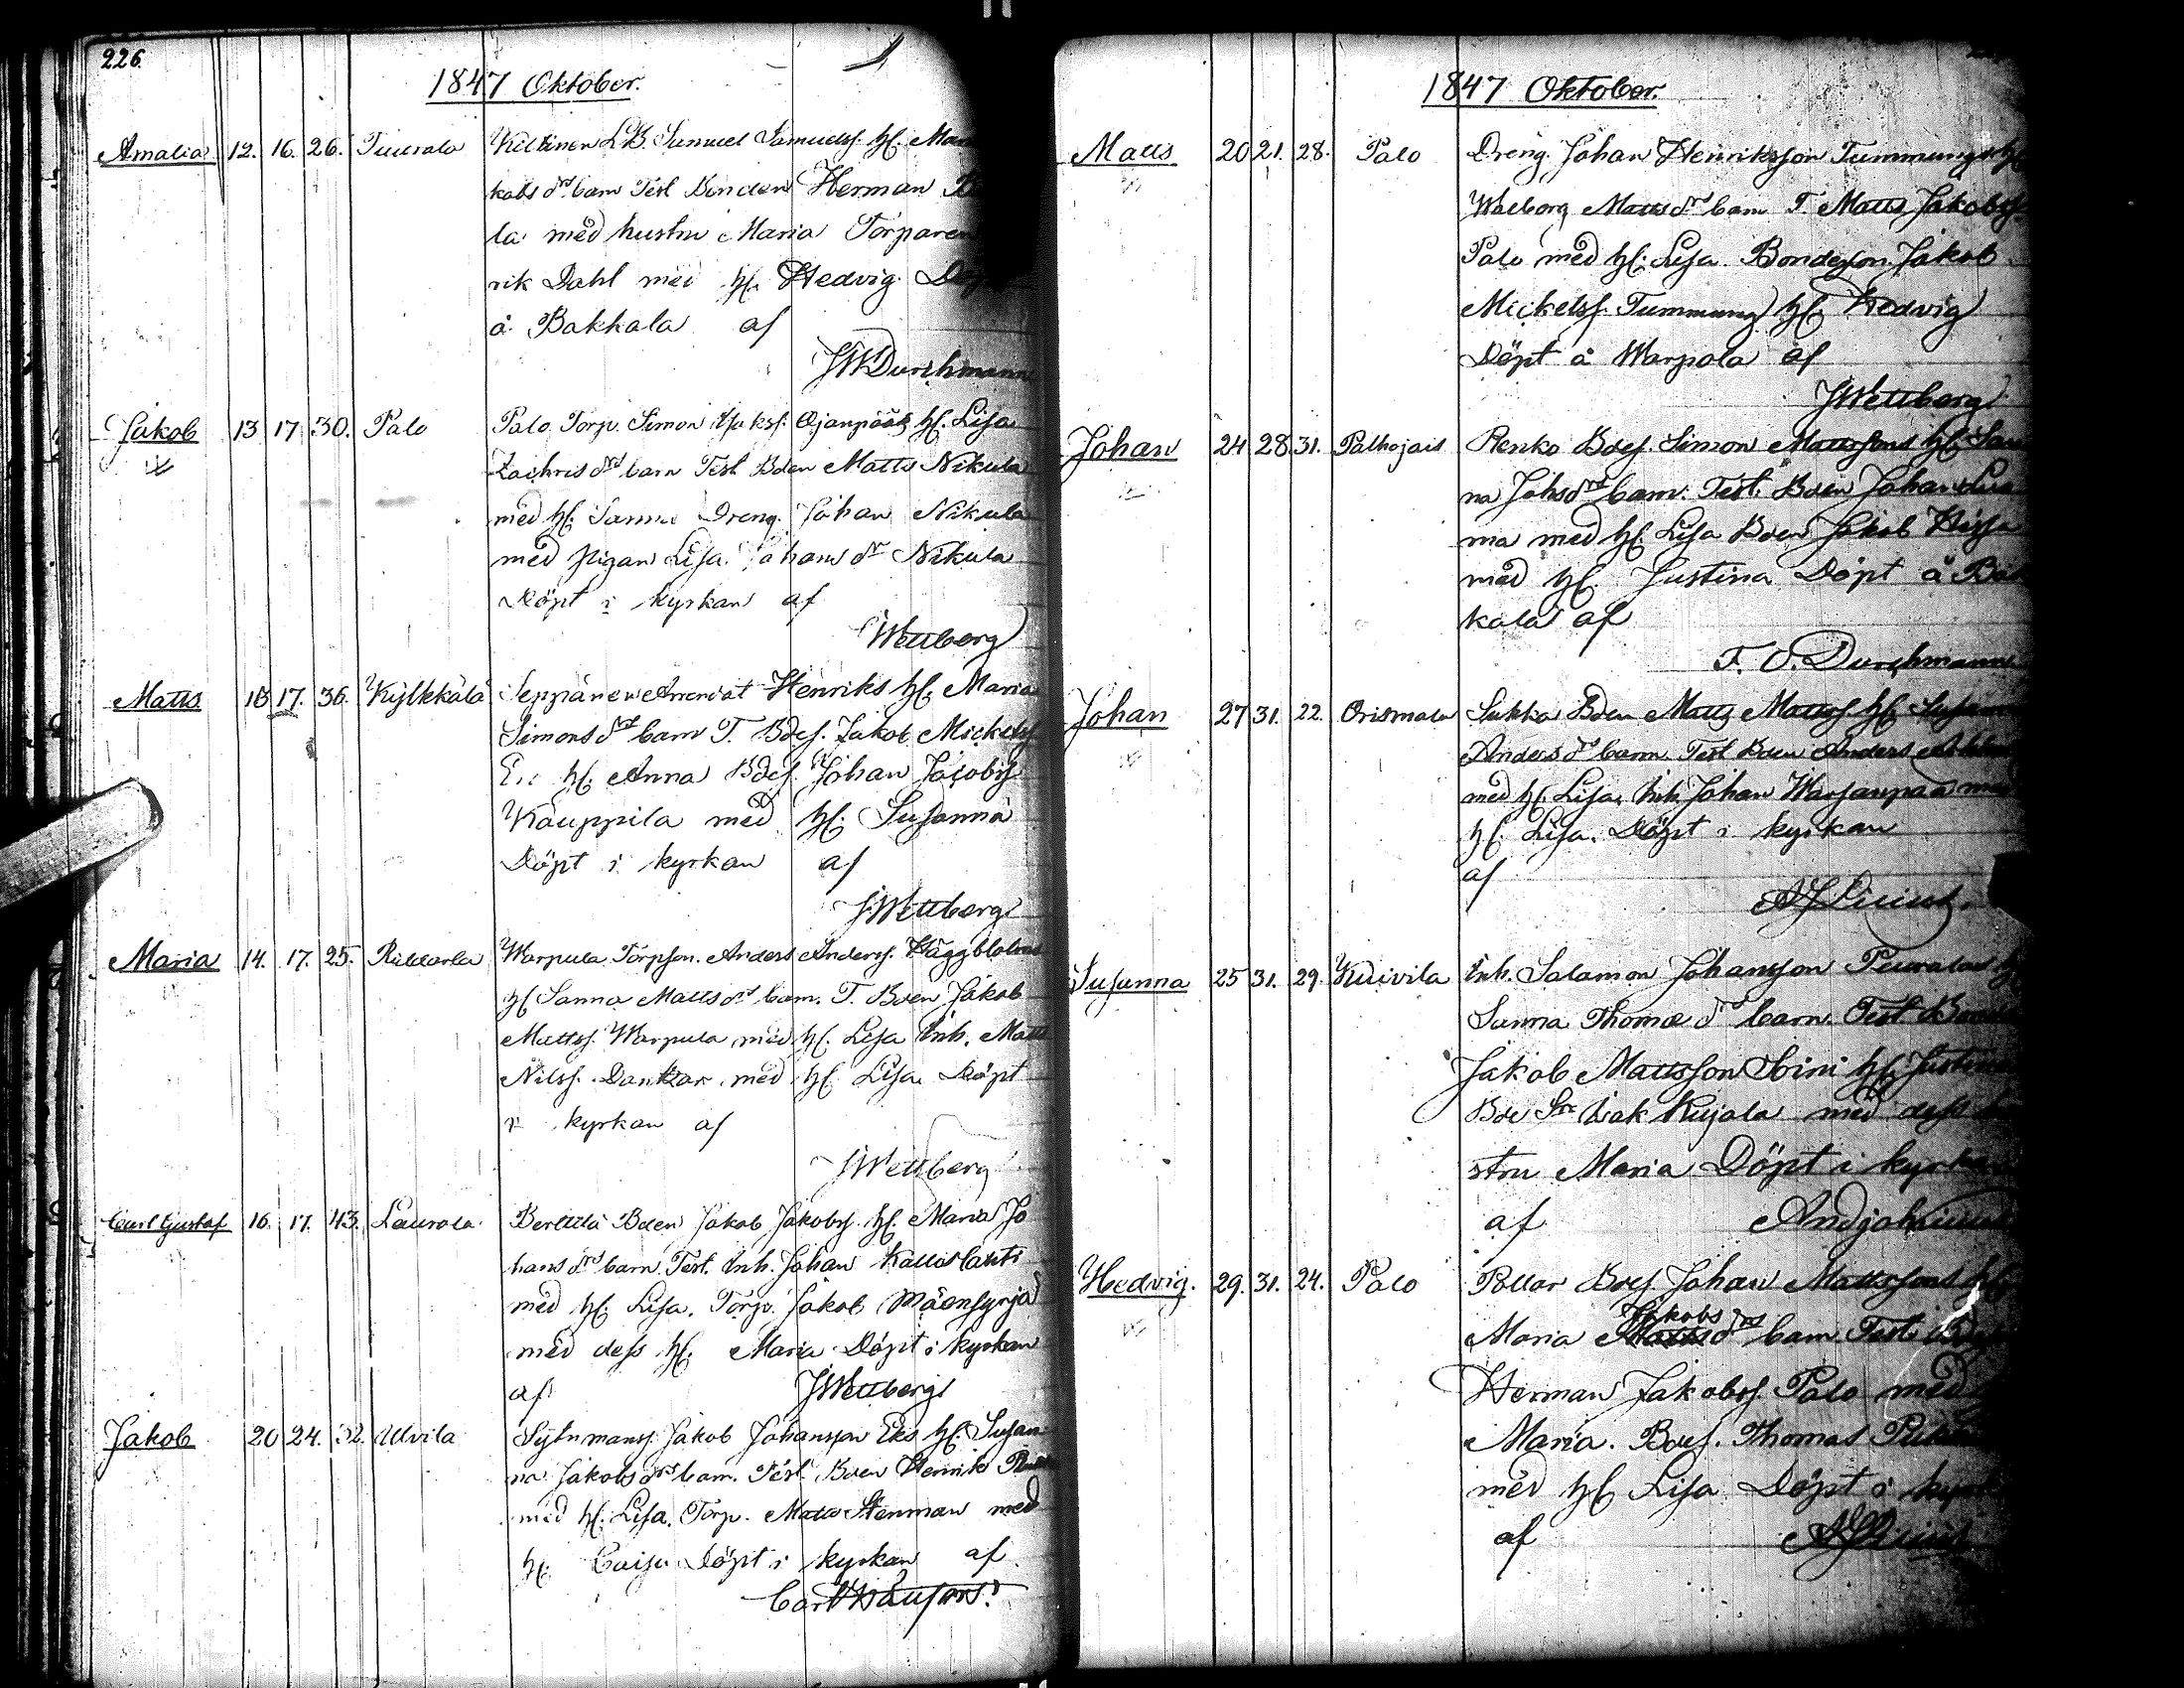 226.
1847 Oktober.
Amalia 12. 16. 26. Tuurala Kiltinen L.B. Samuel Samuelss. hf. Mar
kobs drs barn Test Bonden Herman
la med hustru Maria Torparen
rik Dahl med hf. Hedvig Döp
å Bakkala af
JWDurchmann
Jakob 13 17 30. Palo Palo Torp. Simon Isakss. Ojanpää hf. Lisa
Zachris drs barn Test Bden Matts Nikula
med hf. Sanna Dreng. Johan Nikula
med pigan Lisa Johans dr Nikula
Döpt i kyrkan af
Wettberg
Matts 13 17. 36. Kylkkälä Seppänen Arrendat Henriks hf. Maria
Simons drs barn T. Bdes. Jakob Mickelss
hf. Anna Bdes. Johan Jacobss
Kauppila med hf. Susanna
Döpt i kyrkan af
JWettberg
Maria 14. 17. 25. Ritttarla Warpula Torpson. Anders Anderss. Häggbloms
hf Sanna Matts drs barn. T. Bden Jakob
Mattss. Warpula med hf. Lisa Inh. Matts
Nilss. Dankar med hf. Lisa Döpt
i kyrkan af
JWettberg
Carl Gustaf 16. 17. 43. Laurola Berttila Bden Jakob Jakobss. hf. Maria Jo
hans drs barn Test. Inh. Johan Kallislahti
med hf. Lisa. Torp. Jakob Mäensyrjä
med dess hf. Maria Döpt i kyrkan
af JWettberg
Jakob 20 24. 32. Ulvila Sytnmanss. Jakob Johansson Eks hf. Susan
na Jakobs drs barn. Test. Bden Henrik
med hf. Lisa. Torp. Matts Stenman med
hf. Caisa Döpt i kyrkan af
1847 Oktober.
Matts 20 21. 28. Palo Dreng. Johan Henriksson Tummungs hf
Walborg Matts drs barn T. Matts Jakobss
Palo med hf. Lisa Bondeson Jakob
Mickelss. Tummung hf. Hedvig
Döpt å Warpola af
JWettberg
Johan 24 28 31. Palhojais Renko Bdes. Simon Mattssons hf. San
na Johs drs barn. Test. Bden Johan
ma med hf. Lisa Bden Jakob Hissa
med hf. Justina Döpt å Bak
kala af
F. O. Durchmann
Johan 27 31. 22. Orismala Sukka Bden Matts Mattss hf. Susanna
Anders drs barn Test Bden Anders
med hf. Lisa, Inh. Johan Warsanpää med
hf. Lisa. Döpt i kyrkan
af
Susanna 25 31. 29. Kuivila Inh. Salamon Johansson Peuralas hf
Sanna Thomæ drs barn. Test Bond
Jakob Mattsson Soini hf. Justina
Bde Sn Isak Kujala med dess hu
stru Maria Döpt i kyrkan
af
Hedvig. 29. 31. 24. Palo Pollar Bdes. Johan Mattssons hf
Maria Jakobs drs barn Test. Bd
Herman Jakobss Palo med
Maria. Bdes. Thomas
med hf. Lisa Döpt i kyrk
af